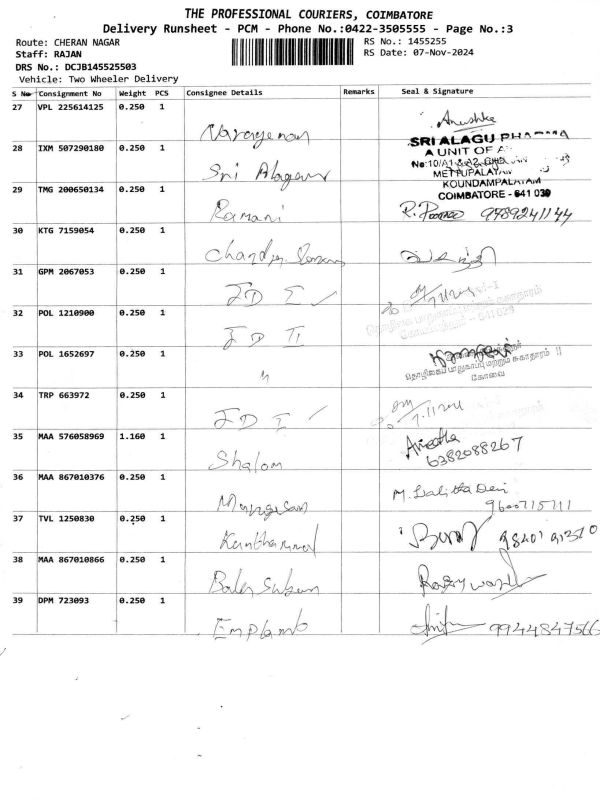 THE PROFESSIONAL COURIERS, COIMBATORE
Delivery Runsheet - PCM - Phone No.:0422-3505555 - Page No.:3
Route: CHERAN NAGAR
RS No.: 1455255
Staff: RAJAN
RS Date: 07-Nov-2024
DRS No.: DCJB145525503
Vehicle: Two Wheeler Delivery
S No Consignment No Weight PCS Consignee Details Remarks Seal & Signature
27 VPL 225614125 0.250 1
Narayenan
Anushka
28 IXM 507290180 0.250 1
Sri Alagar
SRI ALAGU PHARMA
A UNIT OF
METTUPALAYAM
KOUNDAMPALAYAM
COIMBATORE - 641 030
29 TMG 200650134 0.250 1
Ramani
9789241144
30 KTG 7159054 0.250 1
31 GPM 2067053 0.250 1
JD I ✓
32 POL 1210900 0.250 1
JD II
33 POL 1652697 0.250 1
"
தொழிலகப் பாதுகாப்பு மற்றும் சுகாதாரம் II
கோவை
34 TRP 663972 0.250 1
JD I ✓
35 MAA 576058969 1.160 1
Shalom
6382088267
36 MAA 867010376 0.250 1
Murugesan
M. Lalitha Devi
9600715711
37 TVL 1250830 0.250 1
Kanthammal
38 MAA 867010866 0.250 1
39 DPM 723093 0.250 1
9944847566